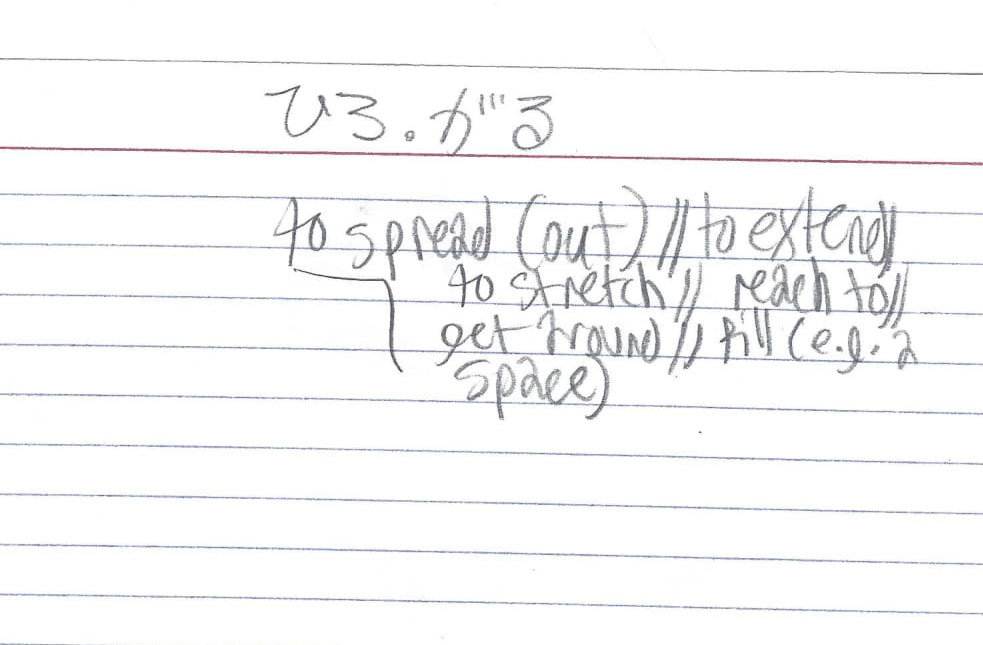 ひろ.がる
to spread (out) // to extend //
to stretch // reach to //
get around // fill (e.g. a
space)